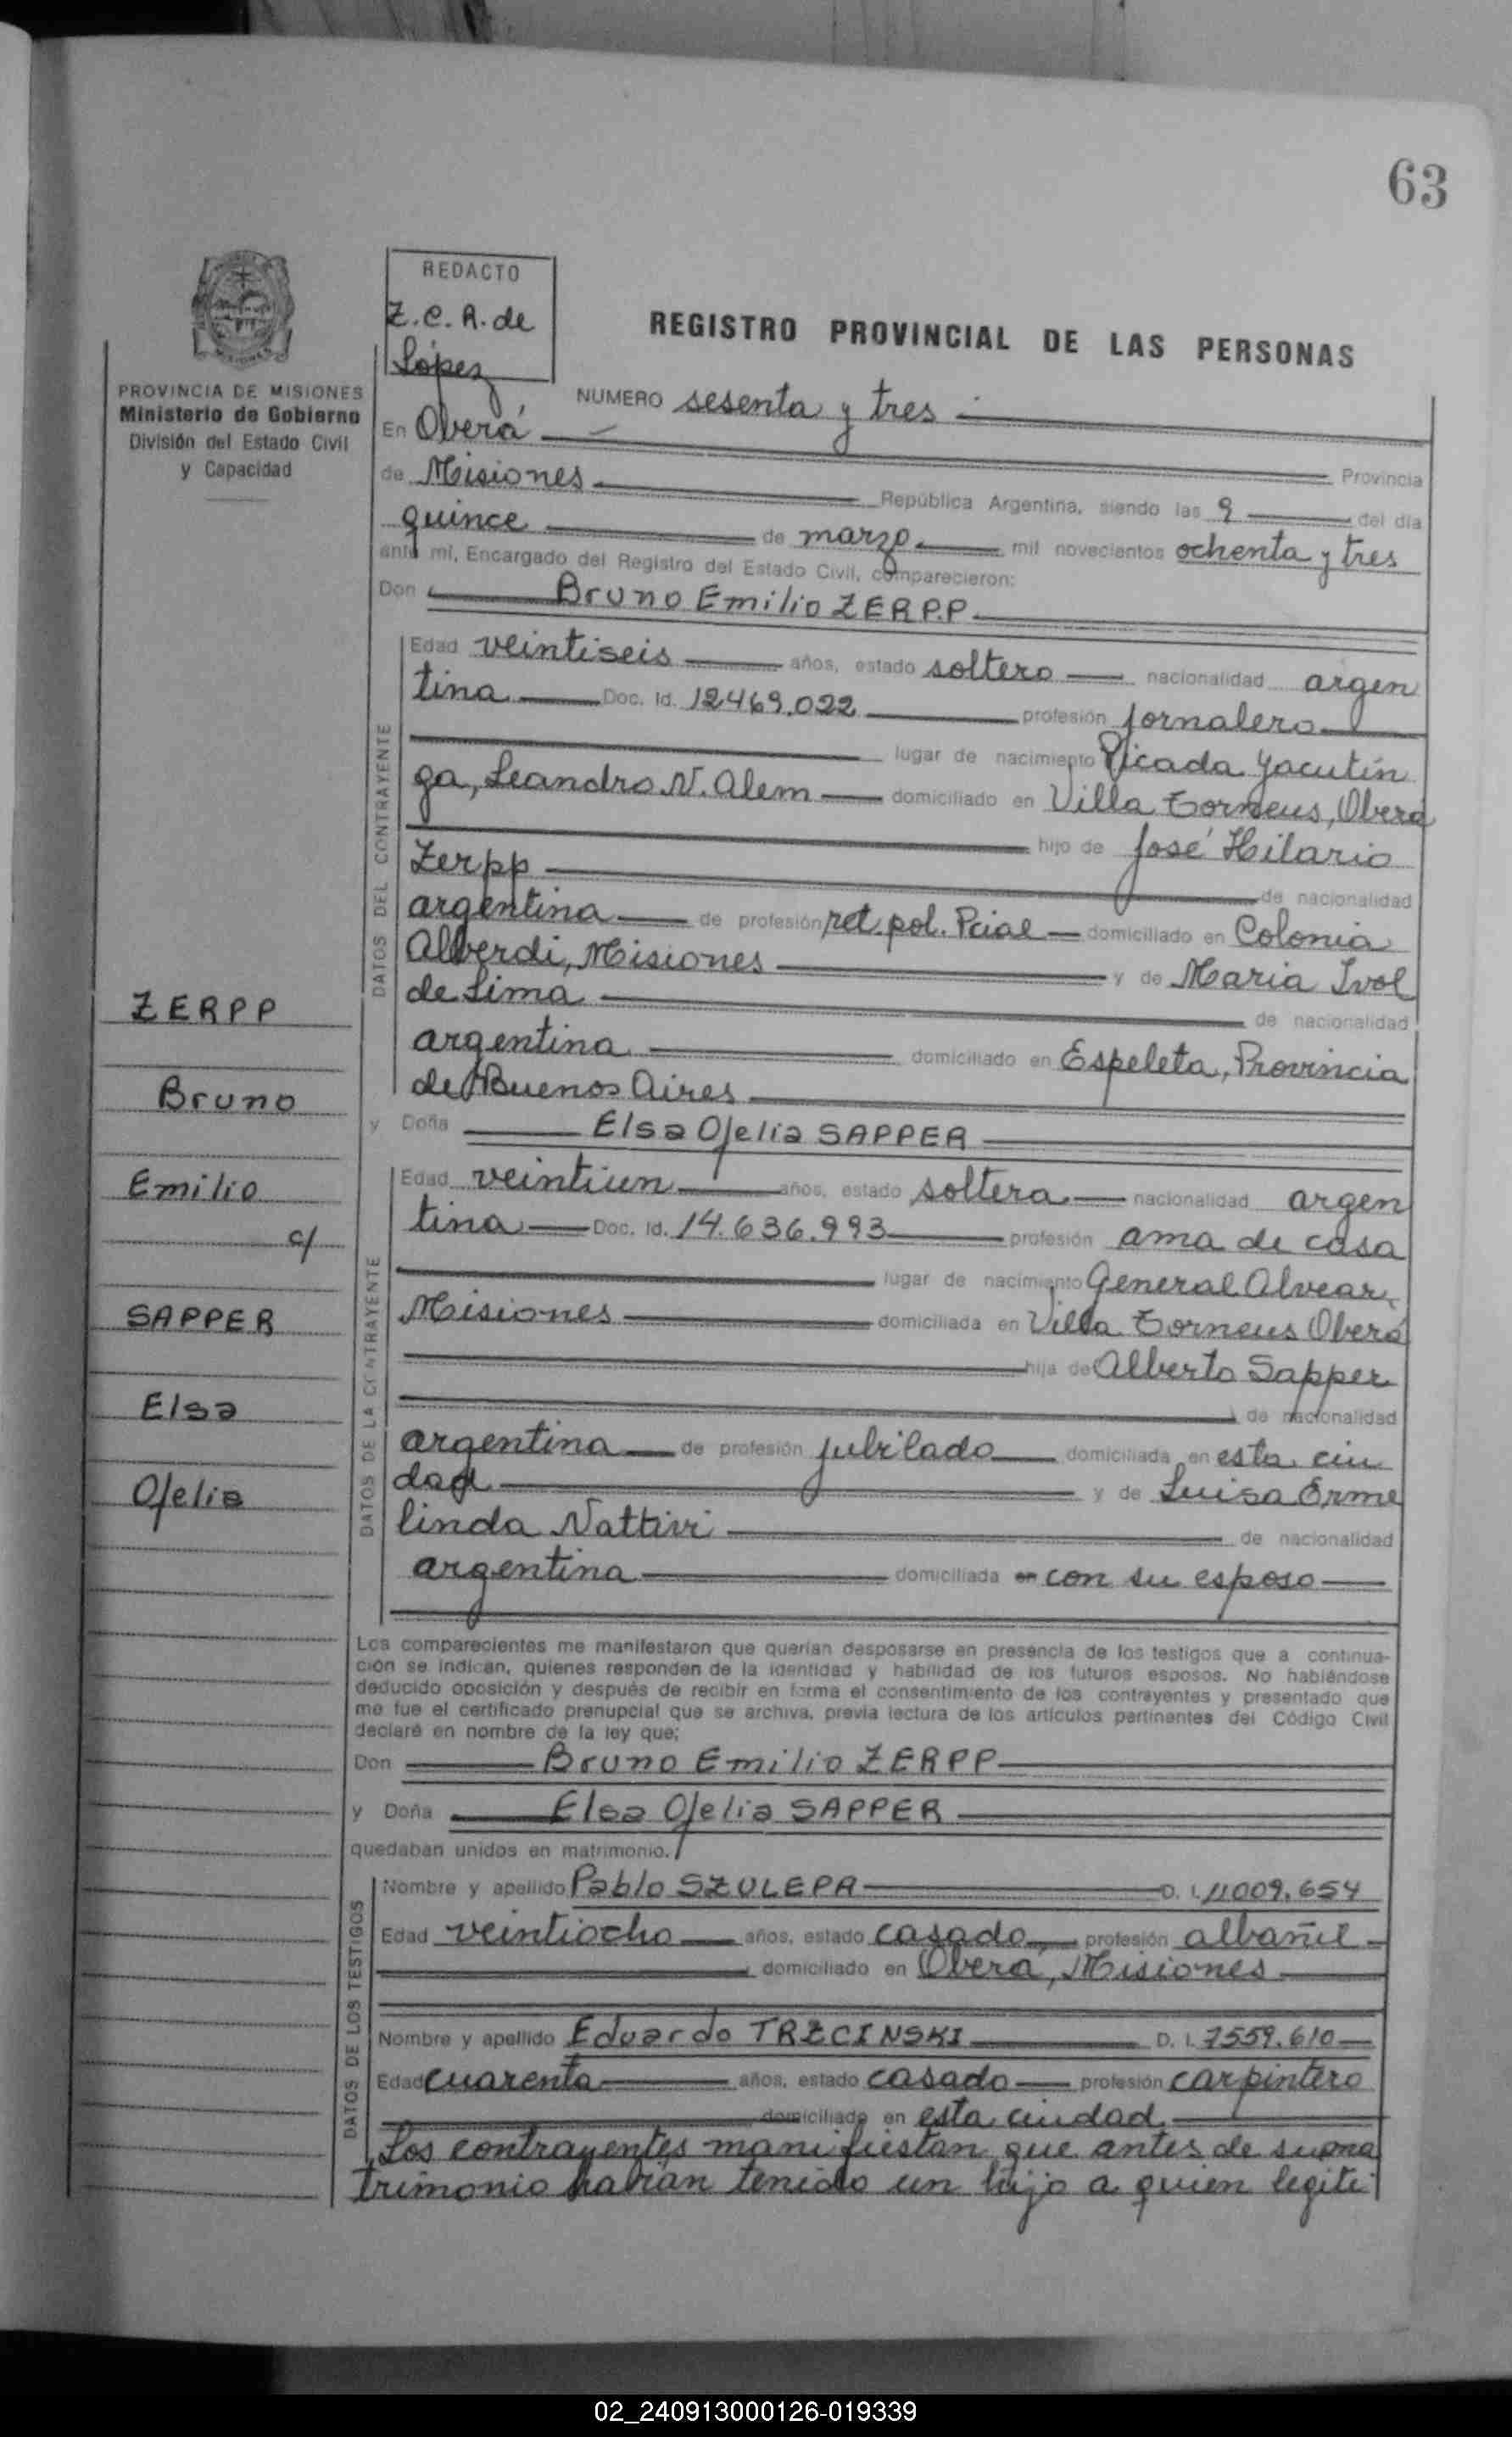 63
REDACTO
Z.C.A. de
López
REGISTRO PROVINCIAL DE LAS PERSONAS
PROVINCIA DE MISIONES
Ministerio de Gobierno
División del Estado Civil
y Capacidad
NUMERO sesenta y tres
En Oberá
Provincia
de Misiones República Argentina, siendo las 9 del día
quince de marzo mil novecientos ochenta y tres
ante mí, Encargado del Registro del Estado Civil, comparecieron:
Don Bruno Emilio ZERPP
DATOS DEL CONTRAYENTE
Edad veintiseis años, estado soltero nacionalidad argen
tina Doc. Id. 12469.022 profesión jornalero
lugar de nacimiento Picada Yacutin
ga, Leandro N. Alem domiciliado en Villa Torneus, Oberá
hijo de José Hilario
Zerpp de nacionalidad
argentina de profesión ret. pol. Pcial domiciliado en Colonia
Alberdi, Misiones y de Maria Ivol
de Lima de nacionalidad
argentina domiciliado en Espeleta, Provincia
de Buenos Aires
y Doña Elsa Ofelia SAPPER
DATOS DE LA CONTRAYENTE
Edad veintiun años, estado soltera nacionalidad argen
tina Doc. Id. 14.636.993 profesión ama de casa
lugar de nacimiento General Alvear,
Misiones domiciliada en Villa Torneus Oberá
hija de Alberto Sapper
de nacionalidad
argentina de profesión jubilado domiciliada en esta ciu
dad y de Luisa Erme
linda Nattivi de nacionalidad
argentina domiciliada en con su esposo
Los comparecientes me manifestaron que querían desposarse en presencia de los testigos que a continua-
ción se indican, quienes responden de la identidad y habilidad de los futuros esposos. No habiéndose
deducido oposición y después de recibir en forma el consentimiento de los contrayentes y presentado que
me fue el certificado prenupcial que se archiva, previa lectura de los artículos pertinentes del Código Civil
declaré en nombre de la ley que;
Don Bruno Emilio ZERPP
y Doña Elsa Ofelia SAPPER
quedaban unidos en matrimonio.
DATOS DE LOS TESTIGOS
Nombre y apellido Pablo SZULEPA D. I. 11009.654
Edad veintiocho años, estado casado, profesión albañil
domiciliado en Oberá, Misiones
Nombre y apellido Eduardo TRZCINSKI D. I. 7559.610
Edad cuarenta años, estado casado profesión carpintero
domiciliado en esta ciudad
Los contrayentes manifiestan que antes de su ma
trimonio habían tenido un hijo a quien legiti
ZERPP
Bruno
Emilio
c/
SAPPER
Elsa
Ofelia
02_240913000126-019339